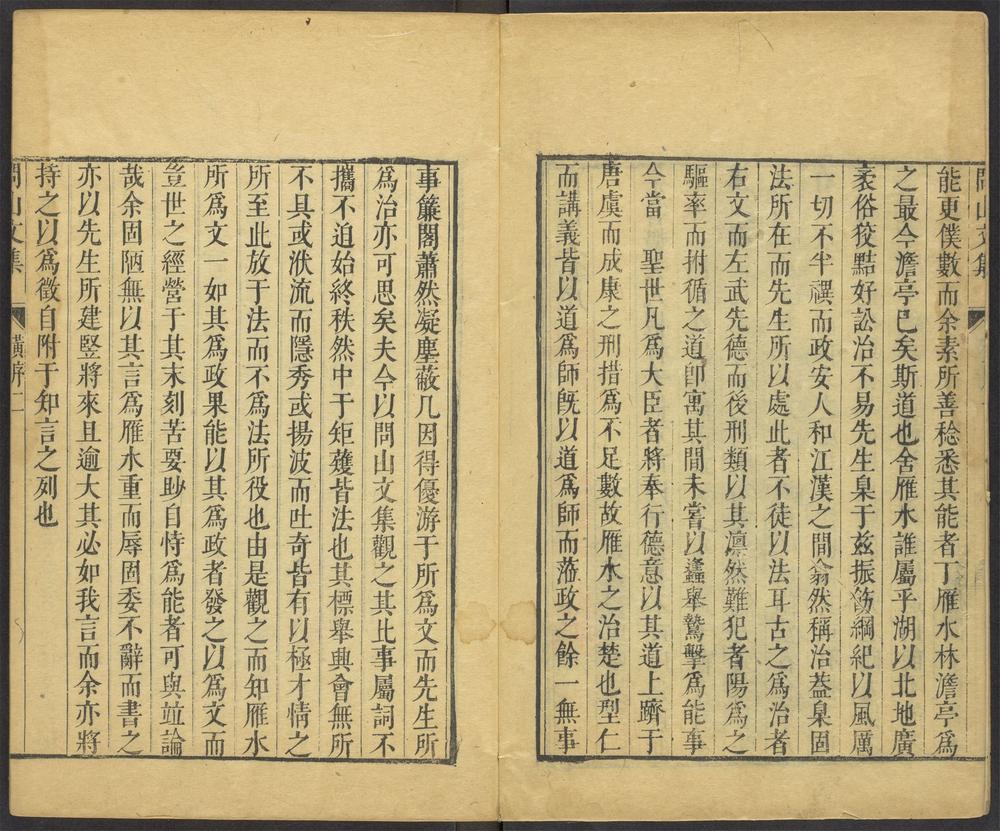 問山文集
能更僕數而余素所善稔悉其能者丁雁水林澹亭爲
之最今澹亭已矣斯道也舍雁水誰屬乎湖以北地廣
袤俗狡黠好訟治不易先生臬于兹振飭綱紀以風厲
一切不半禩而政安人和江漢之間翕然稱治葢臬固
法所在而先生所以處此者不徒以法耳古之爲治者
右文而左武先德而後刑類以其凛然難犯者陽爲之
驅率而拊循之道卽寓其間未嘗以蠭舉鷙擊爲能事
今當 聖世凡爲大臣者將奉行德意以其道上躋于
唐虞而成康之刑措爲不足數故雁水之治楚也型仁
而講義皆以道爲師旣以道爲師而蒞政之餘一無事
事簾閣蕭然凝塵蔽几因得優游于所爲文而先生所
爲治亦可思矣夫今以問山文集觀之其比事屬詞不
攜不迫始終秩然中于矩矱皆法也其標舉興會無所
不具或洑流而隱秀或揚波而吐奇皆有以極才情之
所至此放于法而不爲法所役也由是觀之而知雁水
所爲文一如其爲政果能以其爲政者發之以爲文而
豈世之經營于其末刻苦要眇自恃爲能者可與竝論
哉余固陋無以其言爲雁水重而辱固委不辭而書之
亦以先生所建竪將來且逾大其必如我言而余亦將
持之以爲徵自附于知言之列也
問山文集 黃序 二